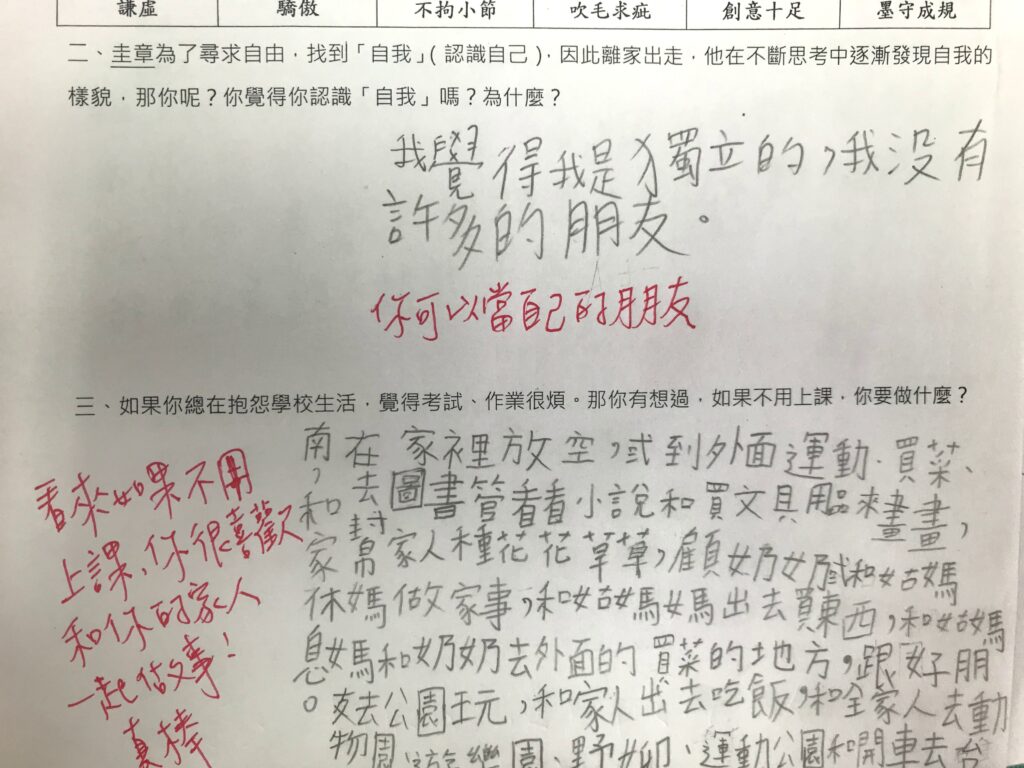 謙虛 驕傲 不拘小節 吹毛求疵 創意十足 墨守成規
二、圭章為了尋求自由，找到「自我」(認識自己)，因此離家出走，他在不斷思考中逐漸發現自我的
樣貌，那你呢？你覺得你認識「自我」嗎？為什麼？
我覺得我是獨立的，我没有
許多的朋友。
你可以當自己的朋友
三、如果你總在抱怨學校生活，覺得考試、作業很煩。那你有想過，如果不用上課，你要做什麼？
在家裡放空，或到外面運動、買菜、
去圖書管看看小說和買文具用品來畫畫，
幫家人種花花草草，顧奶奶或和姑媽
媽做家事，和姑媽媽出去買東西，和姑媽
媽和奶奶去外面的買菜的地方，跟好朋
友去公園玩，和家人出去吃飯，和全家人去動
物園、遊樂園、野餐、運動公園和開車去台
南，和家休息。
看來如果不用
上課，你很喜歡
和你的家人
一起做事！
真棒